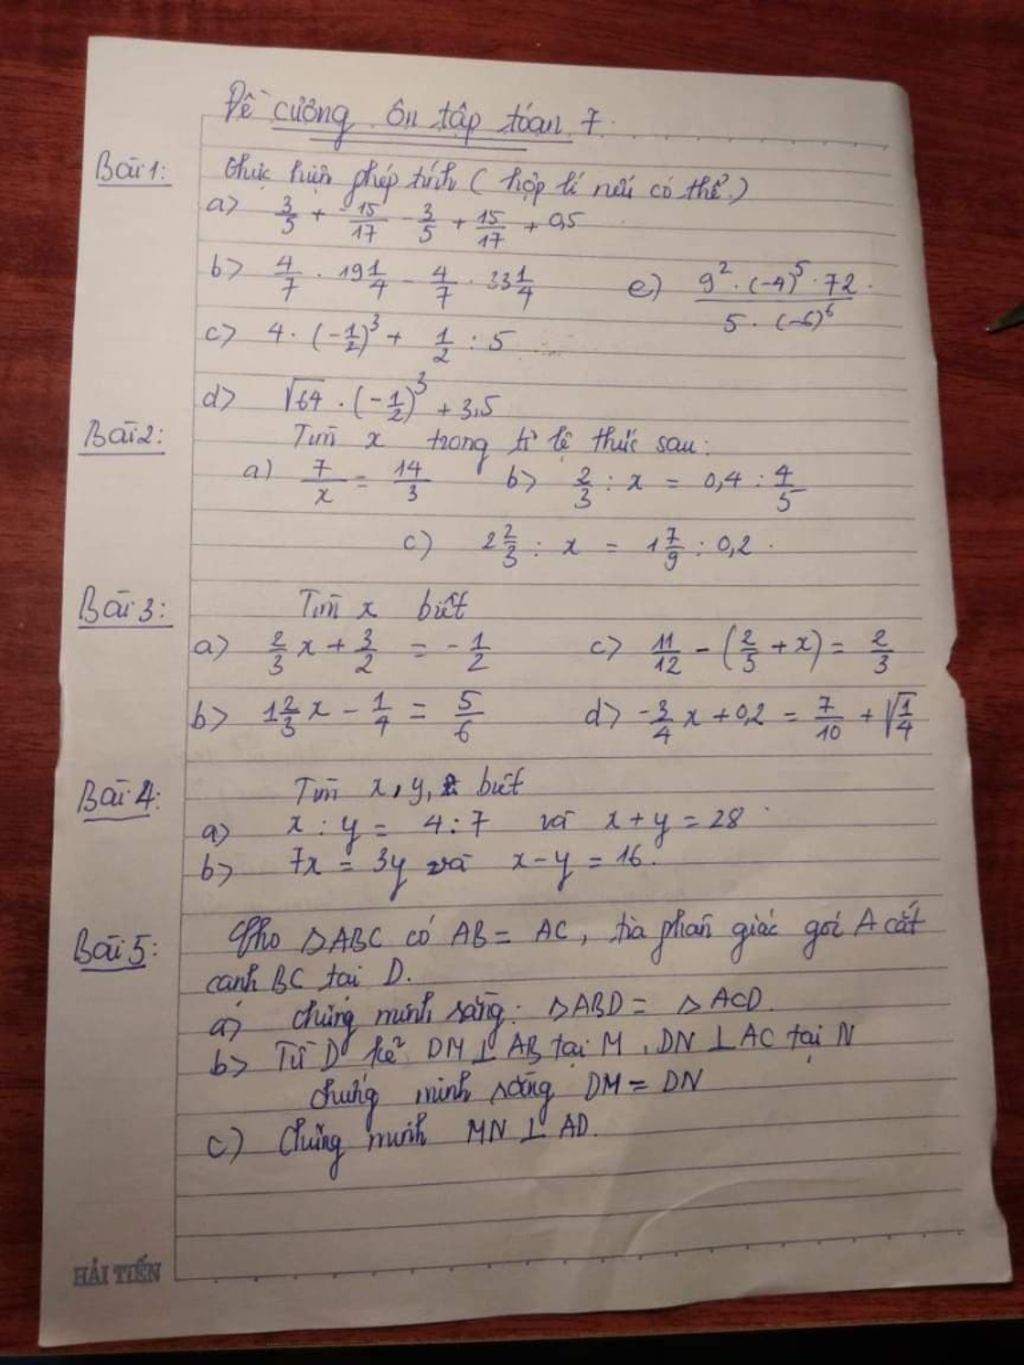 Đề cương ôn tập toán 7.
Bài 1: Thực hiện phép tính ( hợp lí nếu có thể )
a> 3/5 + -15/17 - 3/5 + 15/17 + 0,5
b> 4/7 . 19 1/4 - 4/7 . 33 1/4 e) 9² . (-4)⁵ . 72 . / 5 . (-6)⁶
c> 4 . (-1/2)³ + 1/2 : 5
d> √64 . (-1/2)³ + 3,5
Bài 2: Tìm x trong tỉ lệ thức sau:
a) 7/x = 14/3 b> 2/3 : x = 0,4 : 4/5
c) 2 2/3 : x = 1 7/9 : 0,2 .
Bài 3: Tìm x biết
a) 2/3 x + 3/2 = - 1/2 c> 11/12 - (2/5 + x) = 2/3
b> 1 2/3 x - 1/4 = 5/6 d> -3/4 x + 0,2 = 7/10 + √1/4
Bài 4: Tìm x, y, z biết
a) x : y = 4 : 7 và x + y = 28
b> 7x = 3y và x - y = 16.
Bài 5: Cho △ABC có AB = AC, tia phân giác góc A cắt
cạnh BC tại D.
a) chứng minh rằng: △ABD = △ACD.
b> Từ D kẻ DM ⊥ AB tại M, DN ⊥ AC tại N
chứng minh rằng DM = DN
c) Chứng minh MN ⊥ AD.
HẢI TIẾN